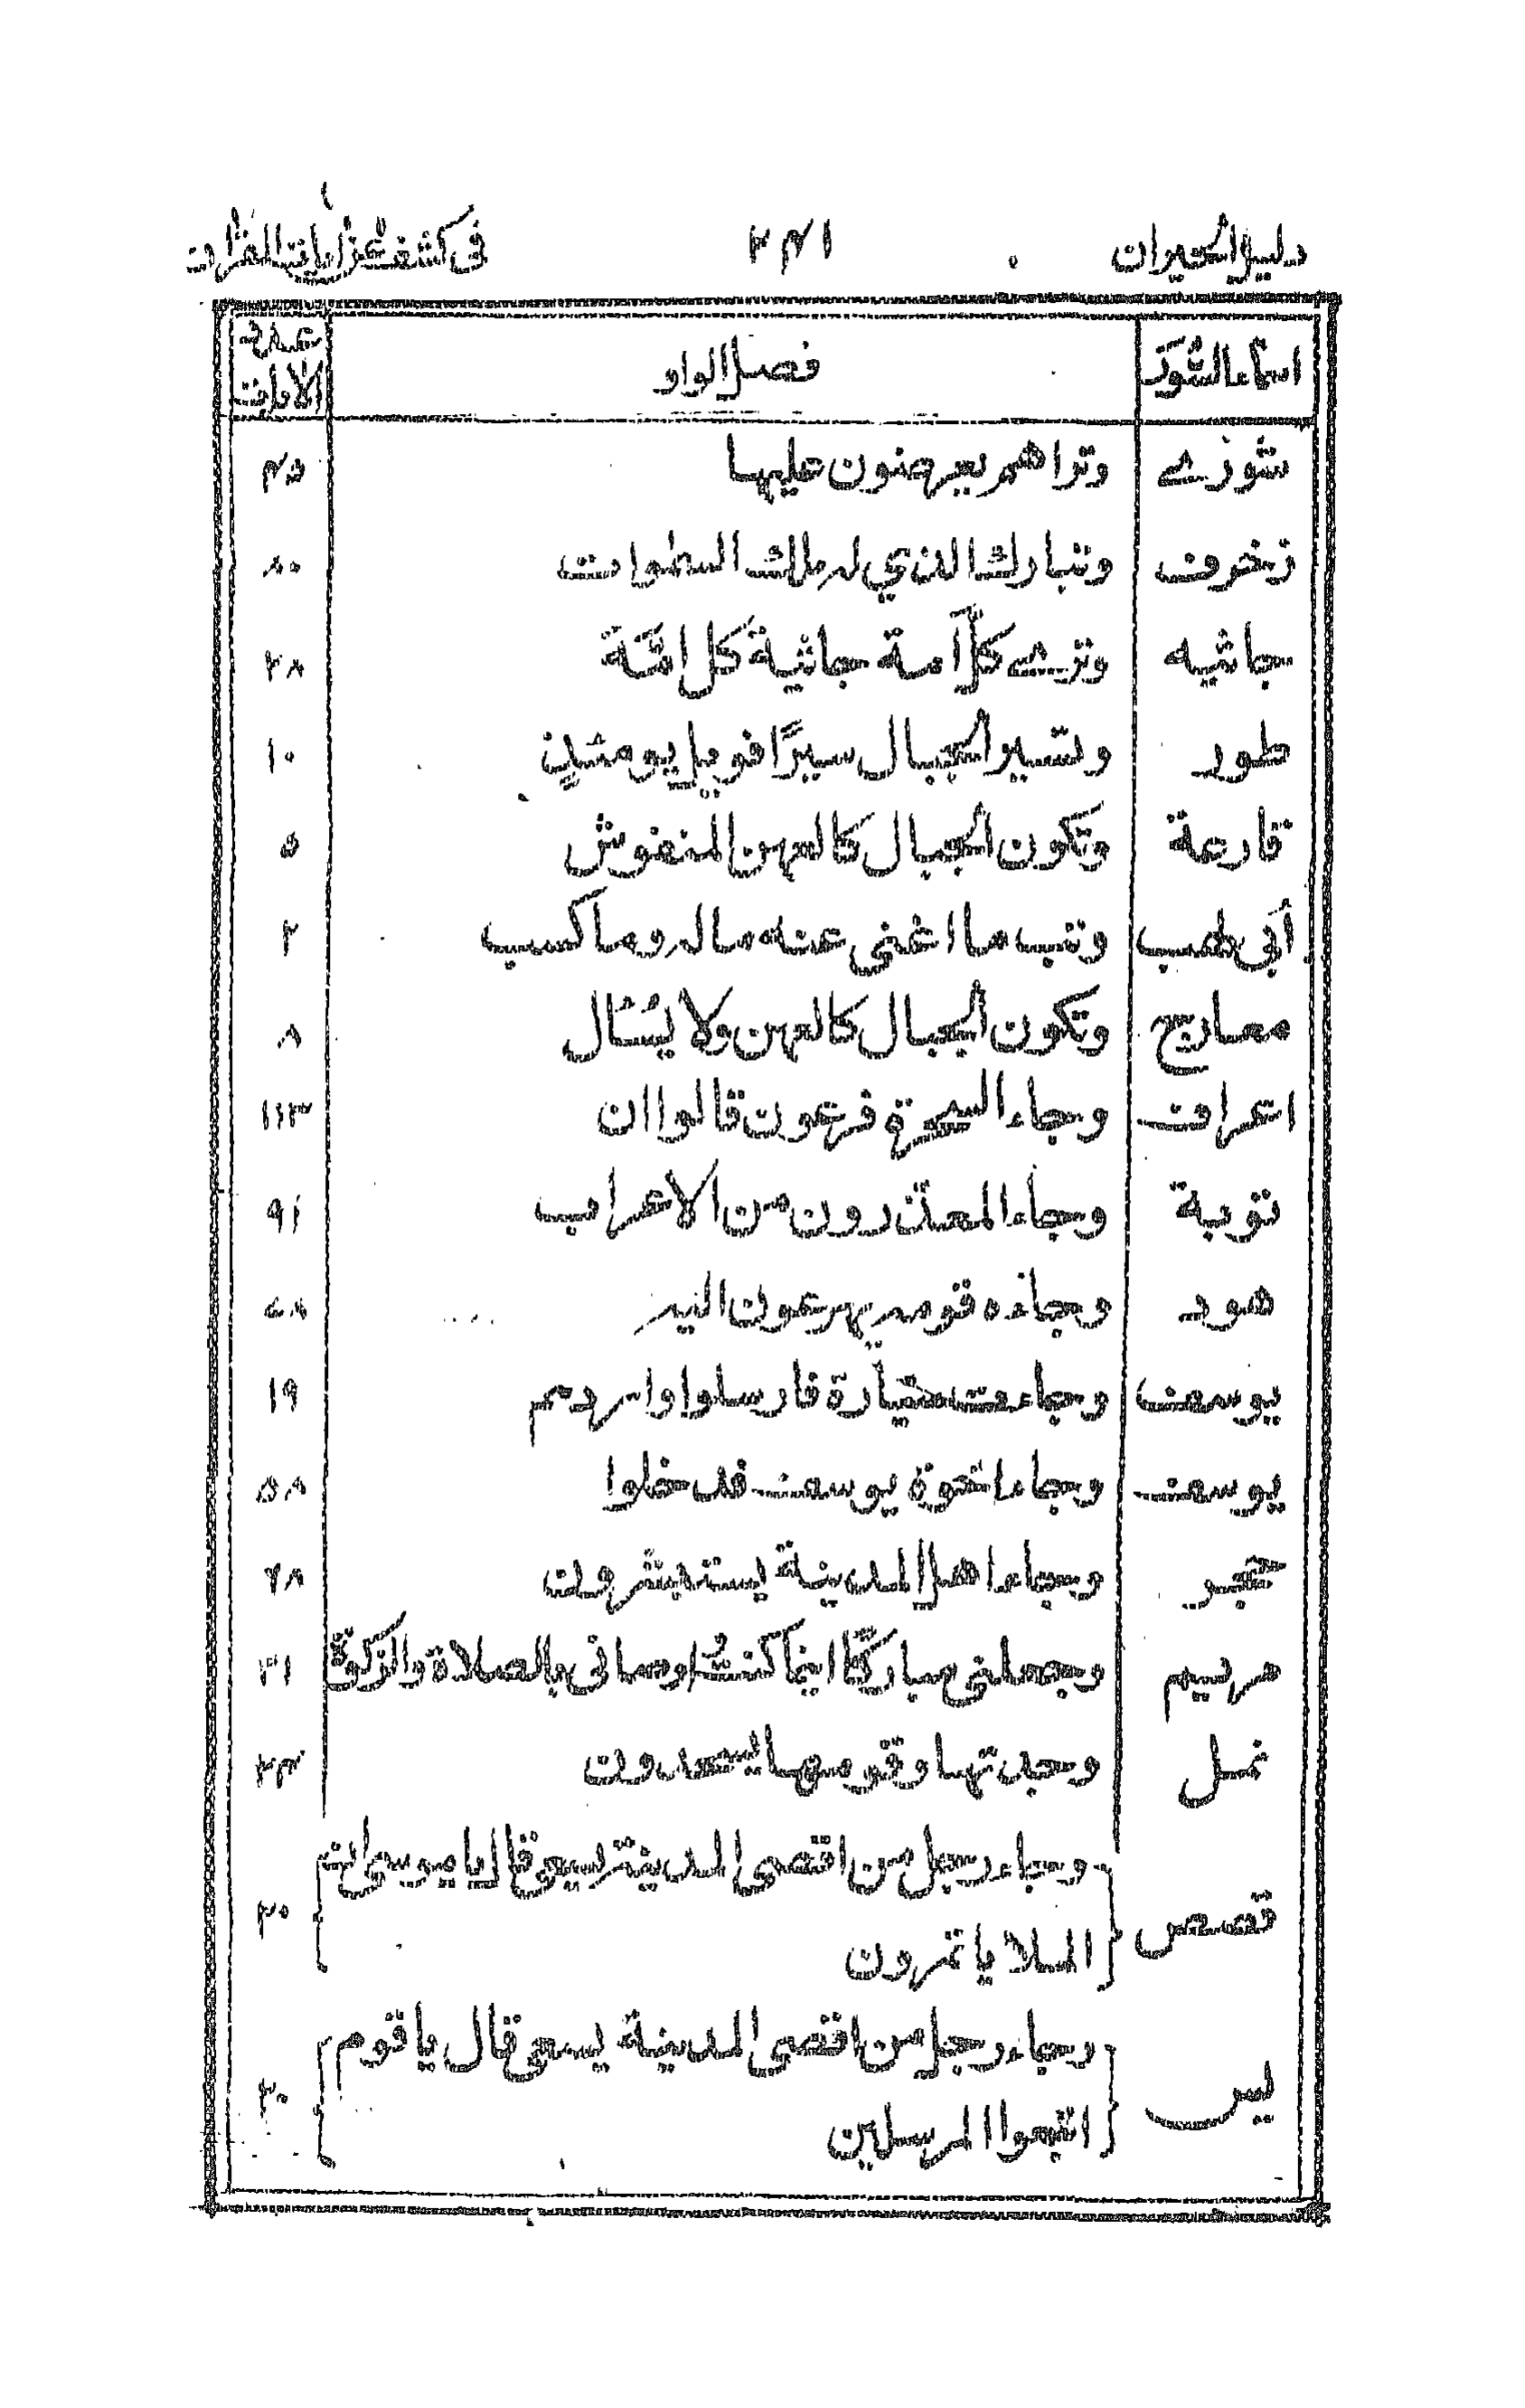 دليل الحيران ٣٤١ في كشف عن آيات القرآن
اسماء السّور فصل الواو عدد الآيات
شورے وتراهم يعرضون عليها ٤٥
زخرف وتبارك الذي له ملك السموات ٨٥
جاثيه وترے كلّ أمة جاثية كل امّة ٢٨
طور وتسير الجبال سيرًا فويل يومئذٍ ١٠
قارعة وتكون الجبال كالعهن المنفوش ٥
أبي لهب وتب ما اغنى عنه ماله وما كسب ٢
معارج وتكون الجبال كالعهن ولا يسئال ٨
اعراف وجاء السحرة فرعون قالوا ان ١١٣
توبة وجاء المعذّرون من الاعراب ٩١
هود وجاءه قومه يهرعون اليه ٧٨
يوسف وجاءت سيّارة فارسلوا واردهم ١٩
يوسف وجاء اخوة يوسف فدخلوا ٥٨
حجر وجاء اهل المدينة يستبشرون ٦٨
مريم وجعلني مباركًا اينما كنتُ اوصاني بالصلاة والزكوة ٣١
نمل وجدتها وقومها يسجدون ٢٣
قصص وجاء رجل من اقصى المدينة يسعى قال يا موسى ان ٢٠
الملا يأتمرون
يس وجاء رجل من اقصى المدينة يسعى قال يا قوم ٢٠
اتبعوا المرسلين